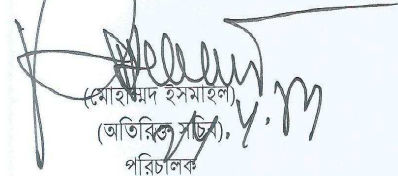 (মোহাম্মদ ইসমাইল)
(অতিরিক্ত সচিব)
পরিচালক